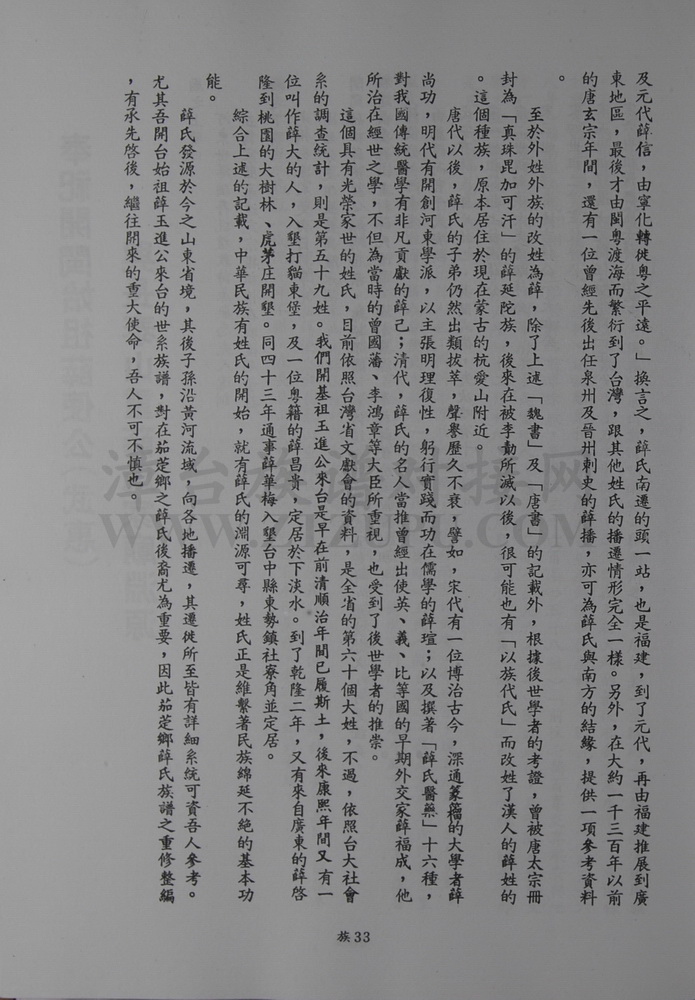 及元代薛信，由寧化轉徙粵之平遠。」換言之，薛氏南遷的頭一站，也是福建，到了元代，再由福建推展到廣
東地區，最後才由閩粵渡海而繁衍到了台灣，跟其他姓氏的播遷情形完全一樣。另外，在大約一千三百年以前
的唐玄宗年間，還有一位曾經先後出任泉州及晉州刺史的薛播，亦可為薛氏與南方的結緣，提供一項參考資料
。
至於外姓外族的改姓為薛，除了上述「魏書」及「唐書」的記載外，根據後世學者的考證，曾被唐太宗冊
封為「真珠毘加可汗」的薛延陀族，後來在被李勣所滅以後，很可能也有「以族代氏」而改姓了漢人的薛姓的
。這個種族，原本居住於現在蒙古的杭愛山附近。
唐代以後，薛氏的子弟仍然出類拔萃，聲譽歷久不衰，譬如，宋代有一位博治古今，深通篆籀的大學者薛
尚功，明代有開創河東學派，以主張明理復性，躬行實踐而功在儒學的薛瑄；以及撰著「薛氏醫藥」十六種，
對我國傳統醫學有非凡貢獻的薛己；清代，薛氏的名人當推曾經出使英、義、比等國的早期外交家薛福成，他
所治在經世之學，不但為當時的曾國藩、李鴻章等大臣所重視，也受到了後世學者的推崇。
這個具有光榮家世的姓氏，目前依照台灣省文獻會的資料，是全省的第六十個大姓，不過，依照台大社會
系的調查統計，則是第五十九姓。我們開基祖玉進公來台是早在前清順治年間已履斯土，後來康熙年間又有一
位叫作薛大的人，入墾打貓東堡，及一位粵籍的薛昌貴，定居於下淡水。到了乾隆二年，又有來自廣東的薛啓
隆到桃園的大樹林、虎茅庄開墾。同四十三年通事薛華梅入墾台中縣東勢鎮社寮角並定居。
綜合上述的記載，中華民族有姓氏的開始，就有薛氏的淵源可尋，姓氏正是維繫著民族綿延不絕的基本功
能。
薛氏發源於今之山東省境，其後子孫沿黃河流域，向各地播遷，其遷徙所至皆有詳細系統可資吾人參考。
尤其吾開台始祖薛玉進公來台的世系族譜，對在茄萣鄉之薛氏後裔尤為重要，因此茄萣鄉薛氏族譜之重修整編
，有承先啓後，繼往開來的重大使命，吾人不可不慎也。
族 33